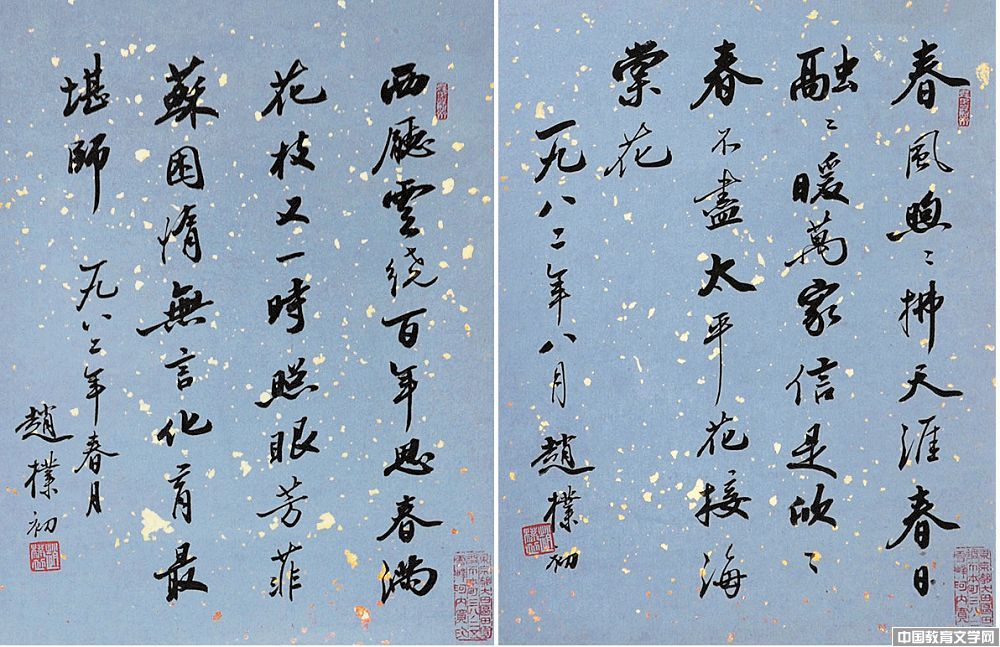 春風煦〻拂天涯春日
融〻暖萬家信是欣〻
春不盡太平花接海
棠花
一九八二年八月 趙樸初
西廳雲绕百年思春滿
花枝又一時照眼芳菲
蘇困惰無言化育最
堪師 一九八二年春月
趙樸初
中国教育文学网